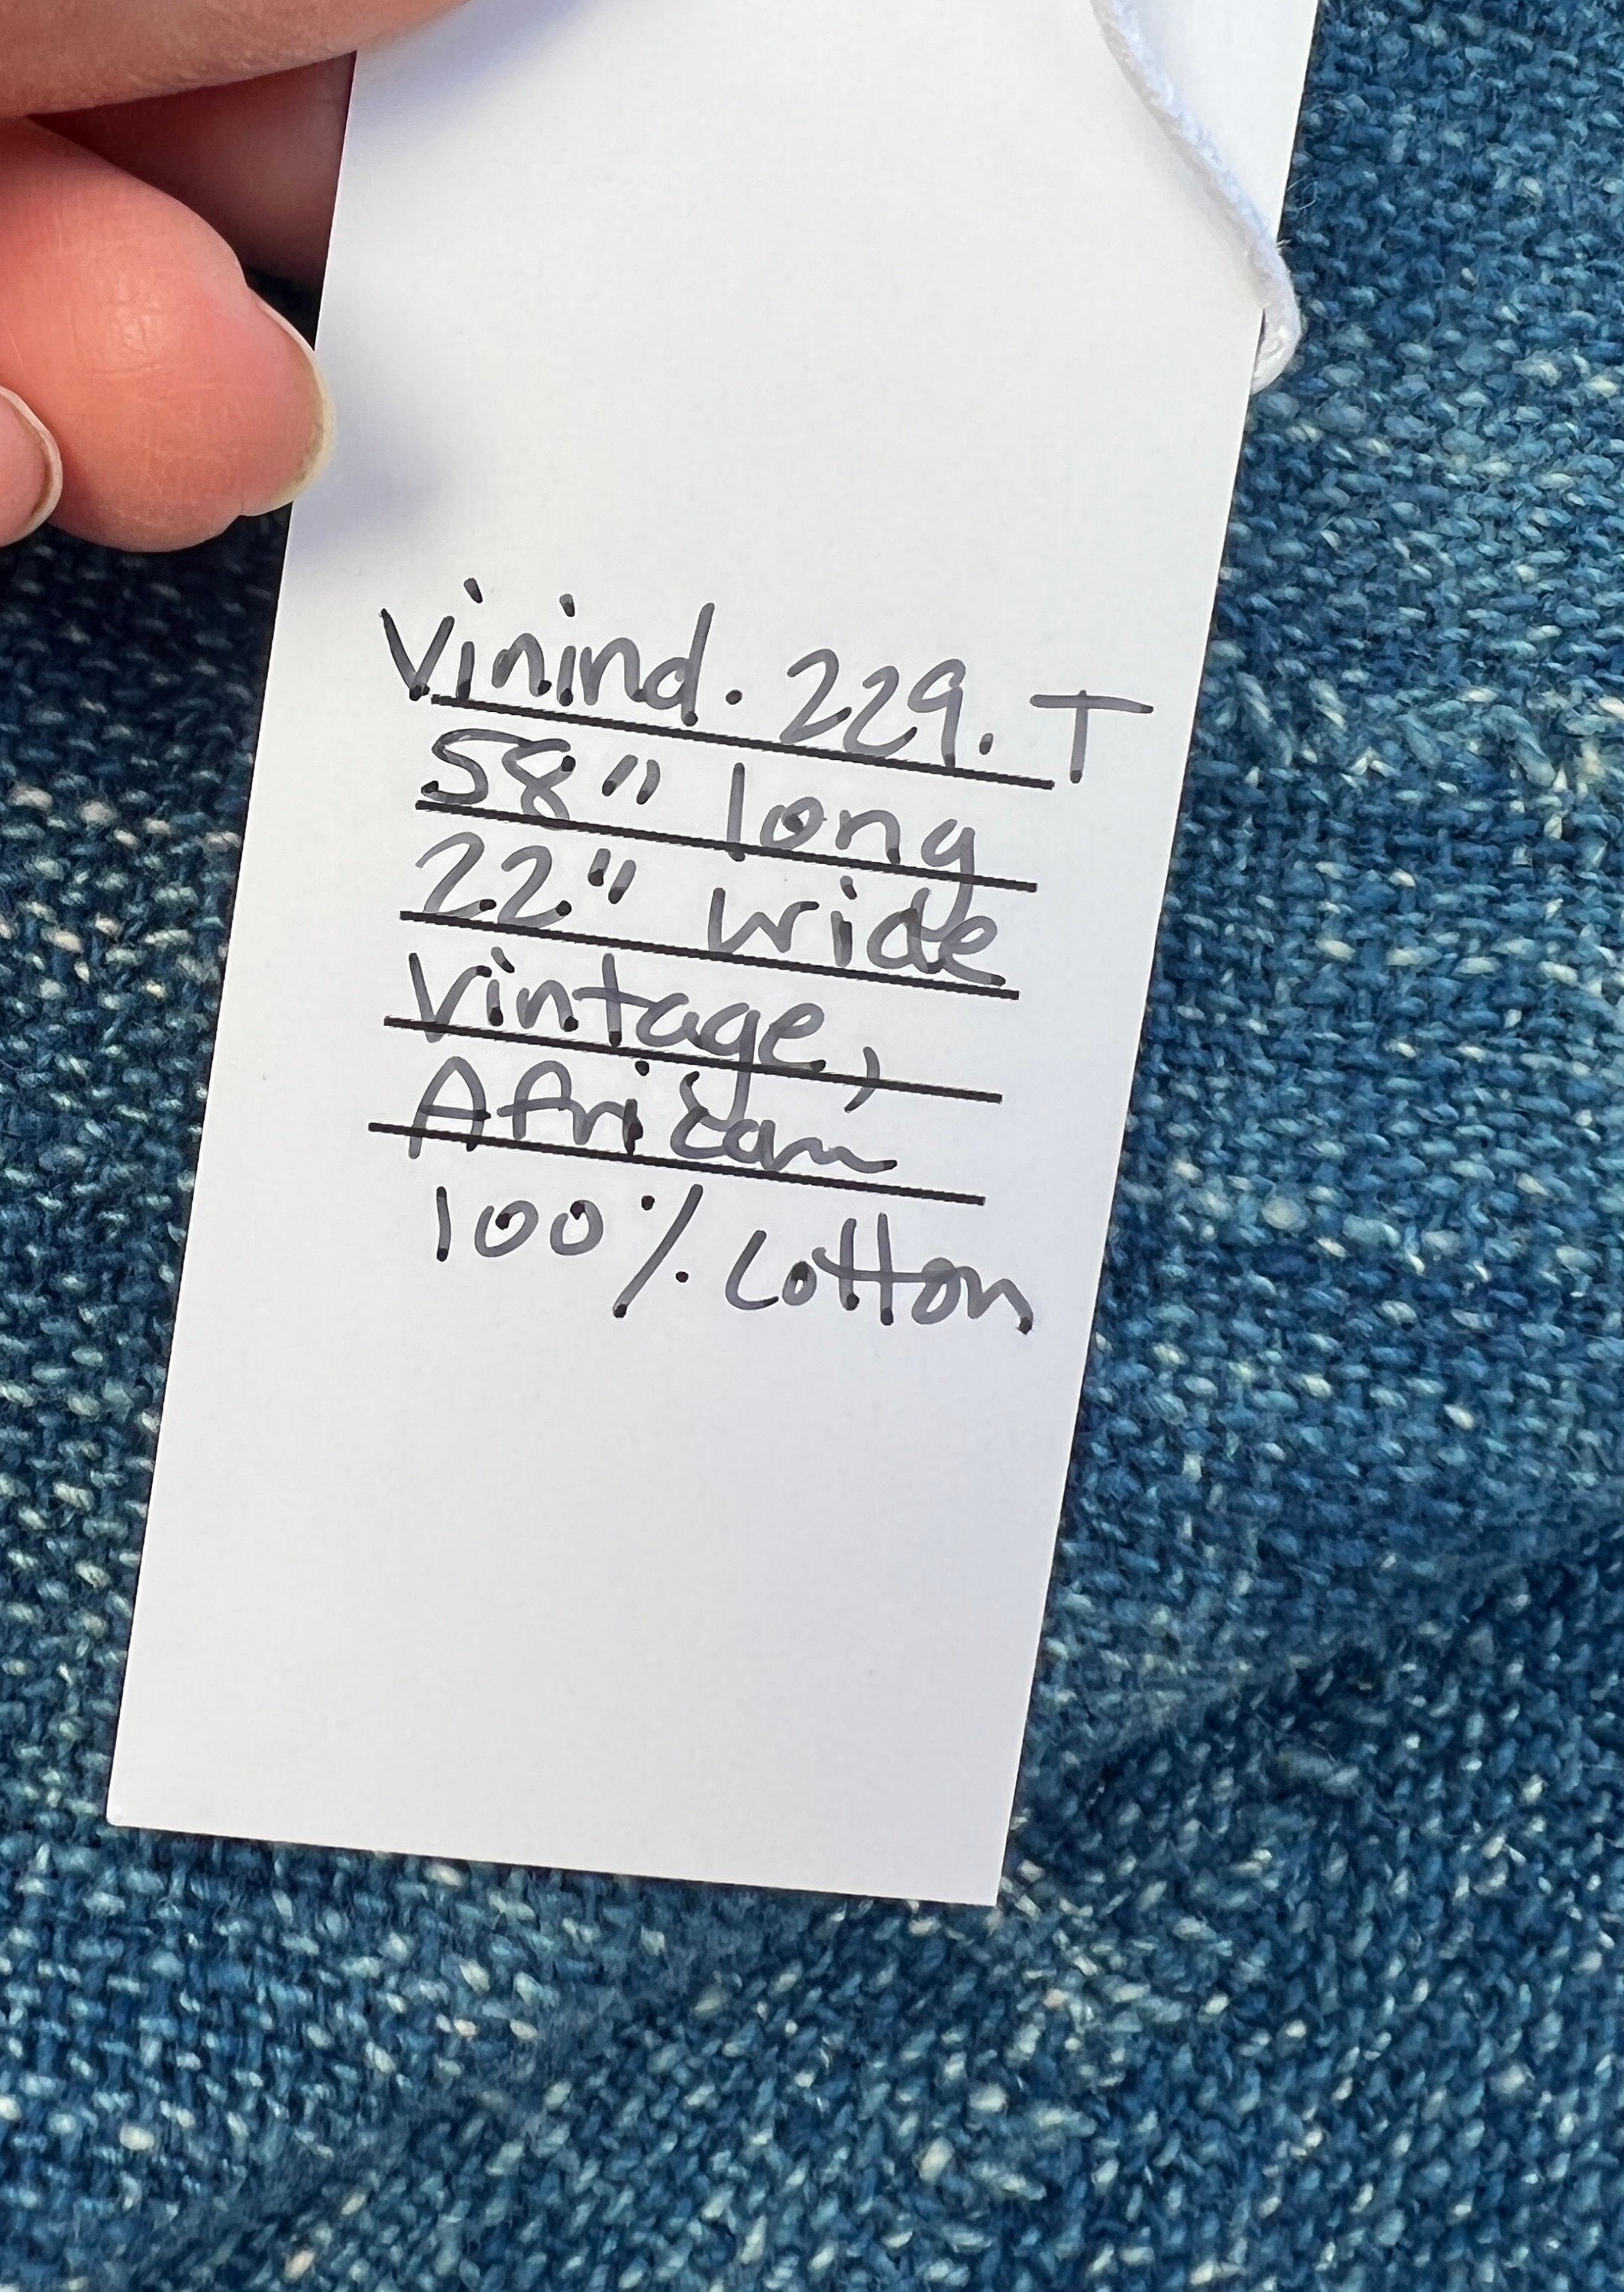 Vinind. 229. T
58" long
22" wide
Vintage,
African
100% Cotton